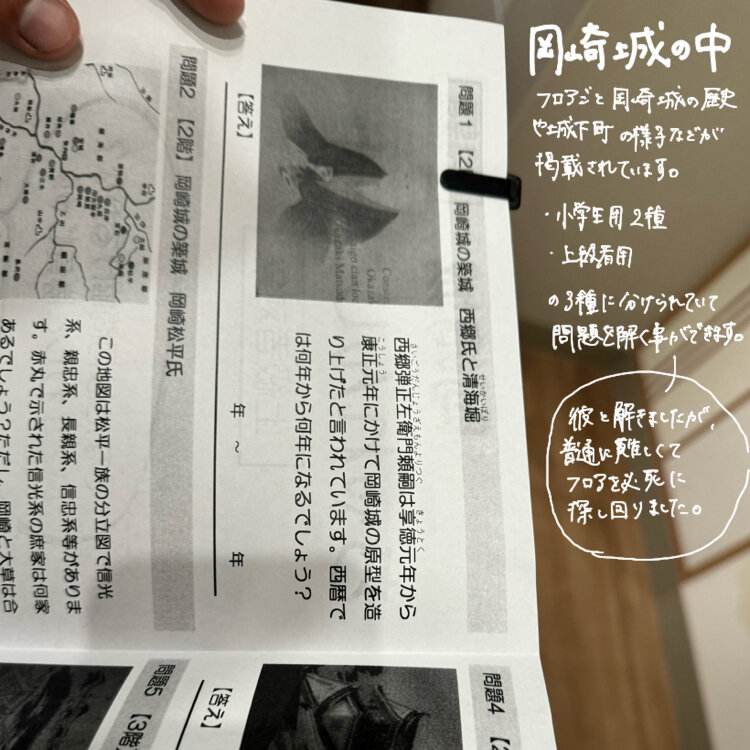 岡崎城の中
フロアごと岡崎城の歴史
や城下町の様子などが
掲載されています。
・小学生用2種
・上級者用
の3種に分けられていて
問題を解く事ができます。
彼と解きましたが、
普通に難しくて
フロアを必死に
探し回りました。
問題1 【2 岡崎城の築城 西郷氏と清海堀
せいかいぼり
西郷弾正左衛門頼嗣は享徳元年から
さいごうだんじょうさえもんよりつぐ きょうとく
康正元年にかけて岡崎城の原型を造
こうしょう
り上げたと言われています。西暦で
は何年から何年になるでしょう？
【答え】
年 ～ 年
問題2 【2階】 岡崎城の築城 岡崎松平氏
この地図は松平一族の分立図で信光
系、親忠系、長親系、信忠系等がありま
す。赤丸で示された信光系の庶家は何家
あるでしょう？ただし、岡崎と大草は合
問題4 【2
【答え】
問題5 【3階